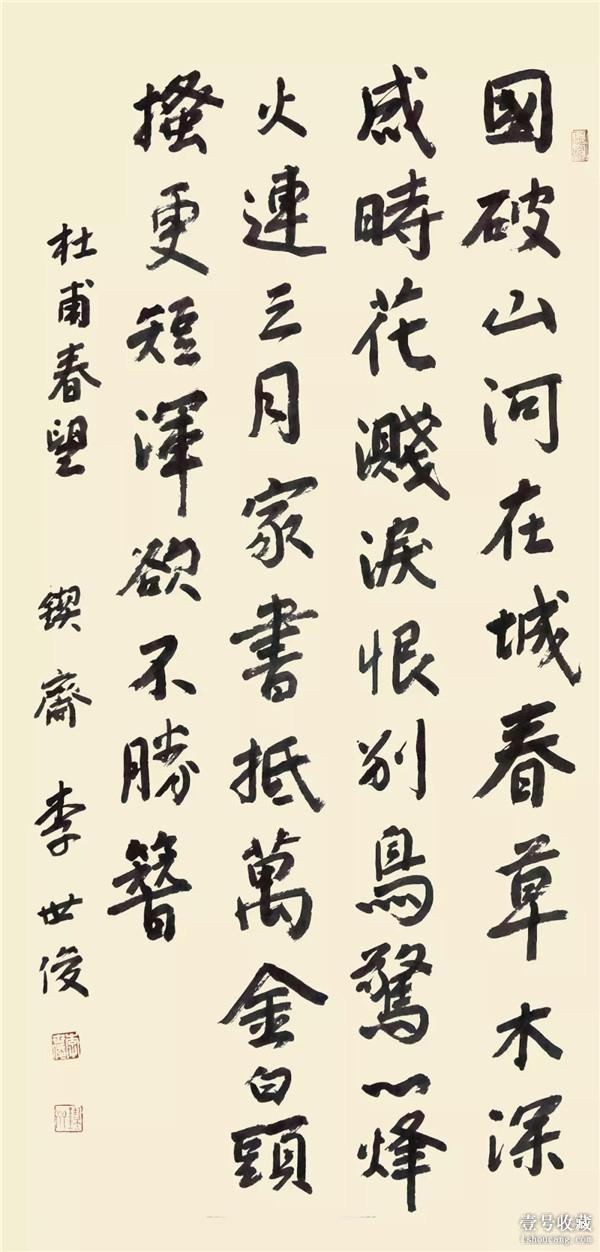 國破山河在城春草木深
感時花濺淚恨別鳥驚心烽
火連三月家書抵萬金白頭
搔更短渾欲不勝簪
杜甫春望 鍥齋 李世俊
壹号收藏
1shoucang.com